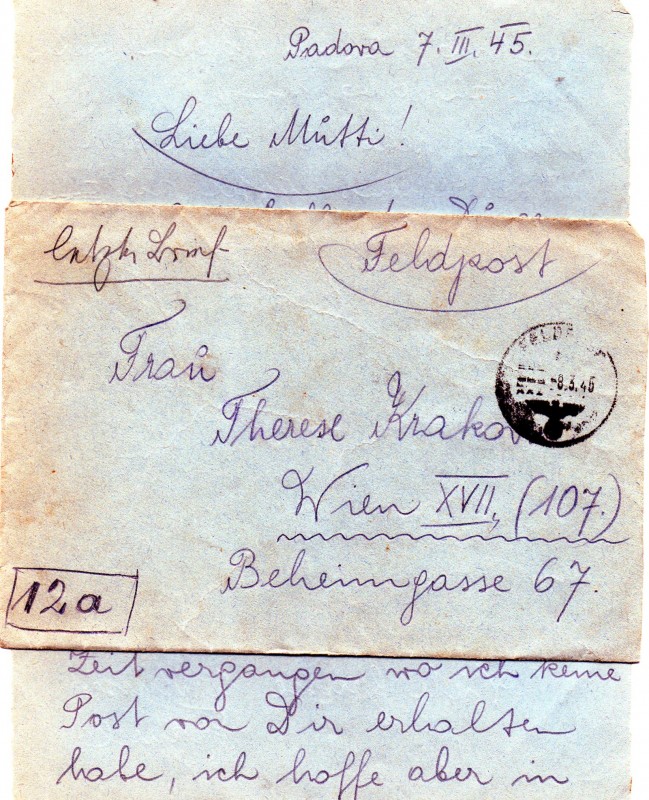 Padova 7. III. 45.
Liebe Mutti!
letzter Brief
Feldpost
Frau
-8.3.45
Therese Krakov
Wien XVII, (107.)
Beheimgasse 67.
12a
Zeit vergangen wo ich keine
Post von Dir erhalten
habe, ich hoffe aber in